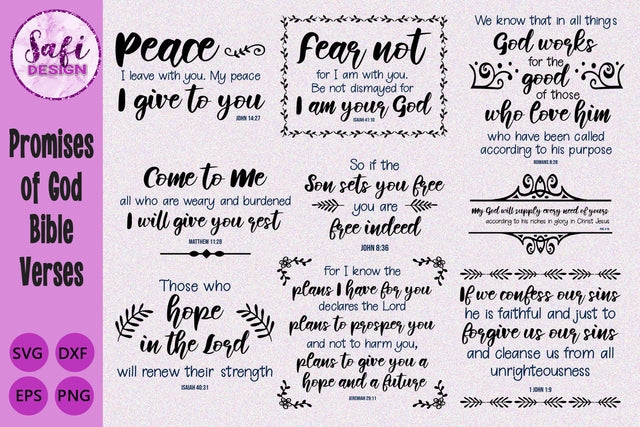 Safi
DESIGN
Promises
of God
Bible
Verses
SVG
DXF
EPS
PNG
Peace
I leave with you. My peace
I give to you
JOHN 14:27
fear not
for I am with you.
Be not dismayed for
I am your God
ISAIAH 41:10
We know that in all things
God works
for the
good
of those
who love him
who have been called
according to his purpose
ROMANS 8:28
Come to Me
all who are weary and burdened
I will give you rest
MATTHEW 11:28
So if the
Son sets you free
you are
free indeed
JOHN 8:36
My God will supply every need of yours
according to his riches in glory in Christ Jesus
Those who
hope
in the Lord
will renew their strength
ISAIAH 40:31
For I know the
plans I have for you
declares the Lord
plans to prosper you
and not to harm you,
plans to give you a
hope and a future
JEREMIAH 29:11
If we confess our sins
he is faithful and just to
forgive us our sins
and cleanse us from all
unrighteousness
1 JOHN 1:9